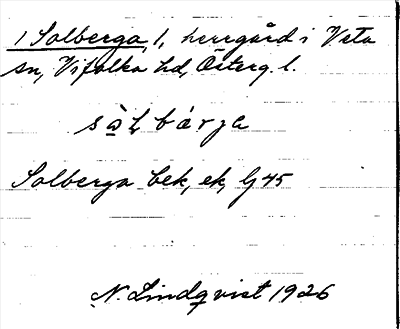 1 Solberga, 1, herrgård i Veta
sn, Vifolka hd, Österg. l.
Solberga bek, ek, Gj 45
N. Lindqvist 1926